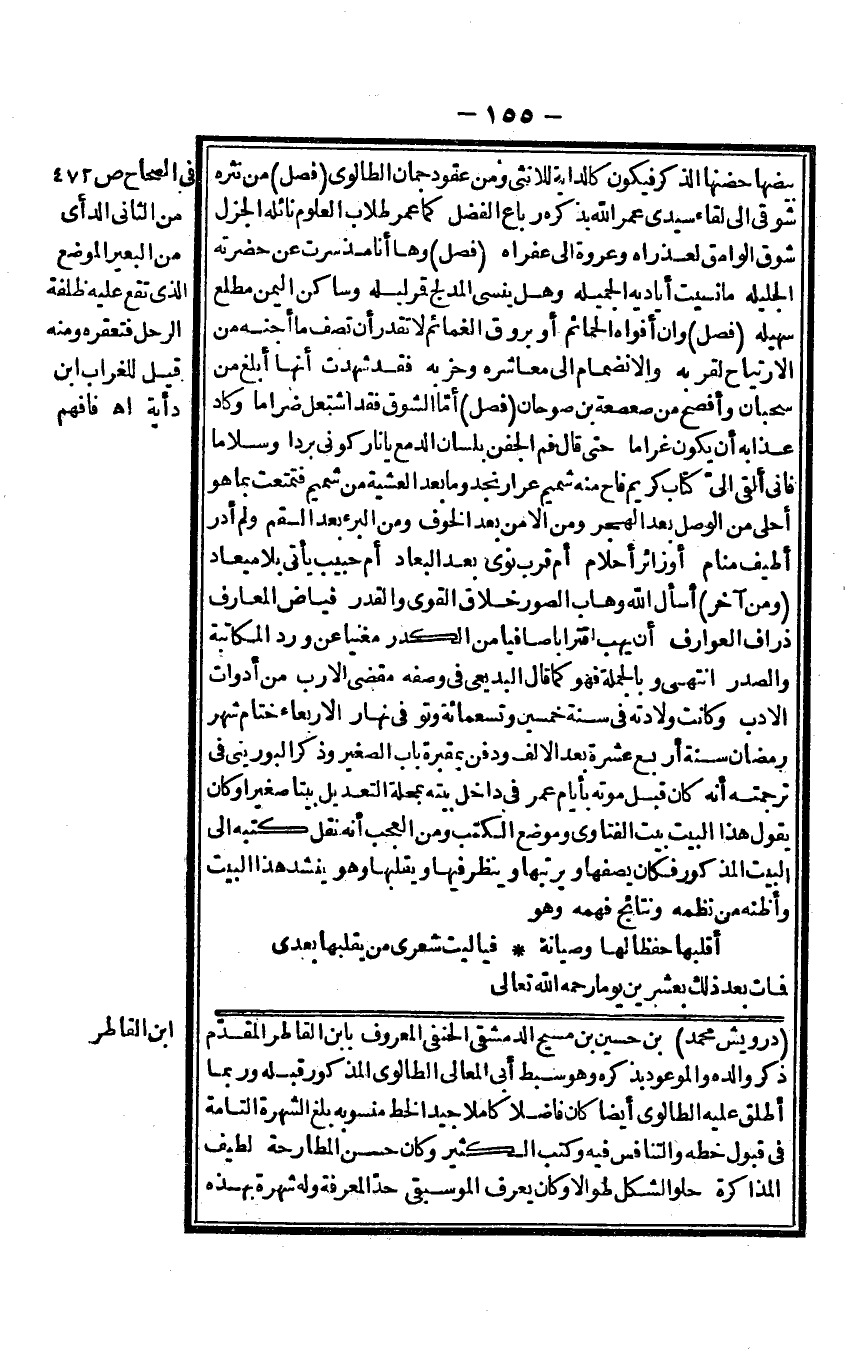 — ١٥٥ —
بيضها حضنها الذكر فيكون كالداية للانثى ومن عقود جمان الطالوى (فصل) من نثره
شوقى الى لقاء سيدى عمر الله بذكره رباع الفضل كما عمر طلاب العلوم نائله الجزل
شوق الوامق لعذراه وعروة الى عفراه (فصل) وها أنا مذ سرت عن حضرته
الجليله ما نسيت أياديه الجميله وهل ينسى المدلج قر ليله وساكن اليمن مطلع
سهيله (فصل) وان أفواه الحمائم أو بروق الغمائم لا تقدر أن تصف ما أجنه من
الارتياح لقربه والانضمام الى معاشره وحزبه فقد شهدت أنها أبلغ من
سحبان وأفصح من صعصعة بن صوحان (فصل) أمّا الشوق فقد اشتعل ضراما وكاد
عذابه أن يكون غراما حتى قال فم الجفن بلسان الدمع يا نار كونى بردا وسلاما
فانى ألقى الىّ كتاب كريم فاح منه شميم عرار نجد وما بعد العشية من شميم فتمتعت بما هو
أحلى من الوصل بعد الهجر ومن الامن بعد الخوف ومن البرء بعد السقم ولم أدر
أطيف منام أو زائر أحلام أم قرب نوى بعد البعاد أم حبيب يأتى بلا ميعاد
(ومن آخر) أسأل الله وهاب الصور خلاق القوى والقدر فياض المعارف
ذراف العوارف أن يهب اقترابا صافيا من الكدر مغنيا عن ورد المكاتبة
والصدر انتهى وبالجملة فهو كما قال البديعى فى وصفه مقضى الارب من أدوات
الادب وكانت ولادته فى سنة خمسين وتسعمائة وتوفى نهار الاربعاء ختام شهر
رمضان سنة أربع عشرة بعد الالف ودفن بمقبرة باب الصغير وذكر البورينى فى
ترجمته أنه كان قبل موته بأيام عمر فى داخل بيته بمحلة التعديل بيتا صغيرا وكان
يقول هذا البيت بيت الفتاوى وموضع الكتب ومن العجب أنه نقل كتبه الى
البيت المذكور فكان يصفها ويرتبها وينظر فيها ويقلبها وهو ينشد هذا البيت
وأظنه من نظمه ونتائج فهمه وهو
أقلبها حفظا لها وصيانة * فيا ليت شعرى من يقلبها بعدى
فات بعد ذلك بعشرين يوما رحمه الله تعالى
(درويش محمد) بن حسين بن مسيح الدمشقى الحنفى المعروف بابن القاطر المقدّم
ذكر والده والموعود بذكره وهو سبط أبى المعالى الطالوى المذكور قبله وربما
أطلق عليه الطالوى أيضا كان فاضلا كاملا جيد الخط منسوبه بلغ الشهرة التامة
فى قبول خطه والتنافس فيه وكتب الكثير وكان حسن المطارحة لطيف
المذاكرة حلو الشكل طوالا وكان يعرف الموسيقى حدّ المعرفة وله شهرة بهذه
فى الصحاح ص ٤٧٢
من الثانى الدأى
من البعير الموضع
الذى تقع عليه ظلفة
الرحل فتعقره ومنه
قيل للغراب ابن
دأية اه فافهم
ابن القاطر